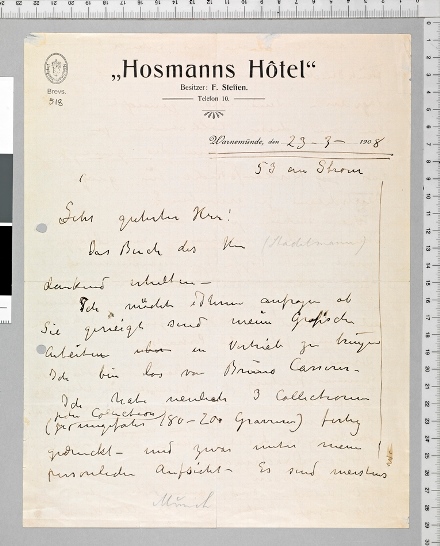 „Hosmanns Hôtel“
Besitzer: F. Steffen.
Telefon 10.
Brevs.
Warnemünde, den 23-3- 1908
53 am Strom
Sehr geehrter Herr!
Das Buch des Hrn
dankend erhalten-
Ich möchte Ihnen anfragen ob
Sie geneigt sind meine Grafische
Arbeiten in Vertrieb zu bringen
Ich bin los von Bruno Cassirer-
Ich habe neulich 3 Collectionen
(jede Collection
ungefähr 180-200 Gravuren) fertig
gedruckt- und zwar unter meine
persönliche Aufsicht- Es sind meistens
Munch